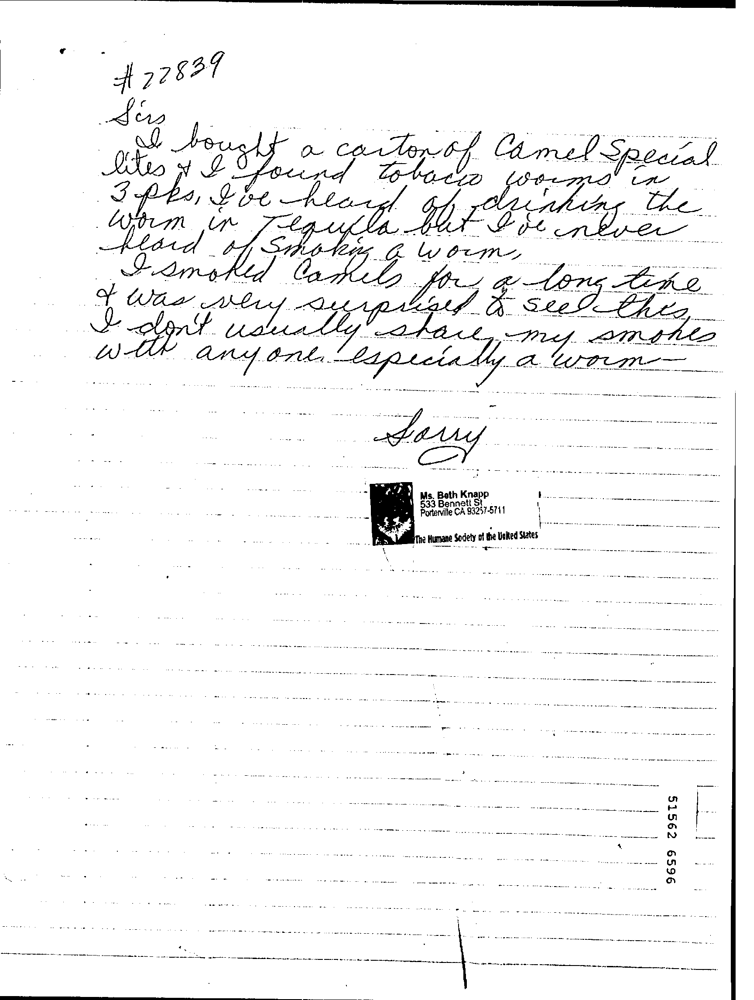 #22839
Sirs
I bought a carton of Camel Special
lites & I found tobacco worms in
3 pks, I've heard of drinking the
worm in Tequilla but I've never
heard of Smoking a worm,
I smoked Camels for a long time
& was very surprised to see this,
I don't usually share my smokes
with anyone especially a worm—
Sorry
Ms. Beth Knapp
533 Bennett St
Porterville CA 93257-5711
The Humane Society of the United States
51562 6596